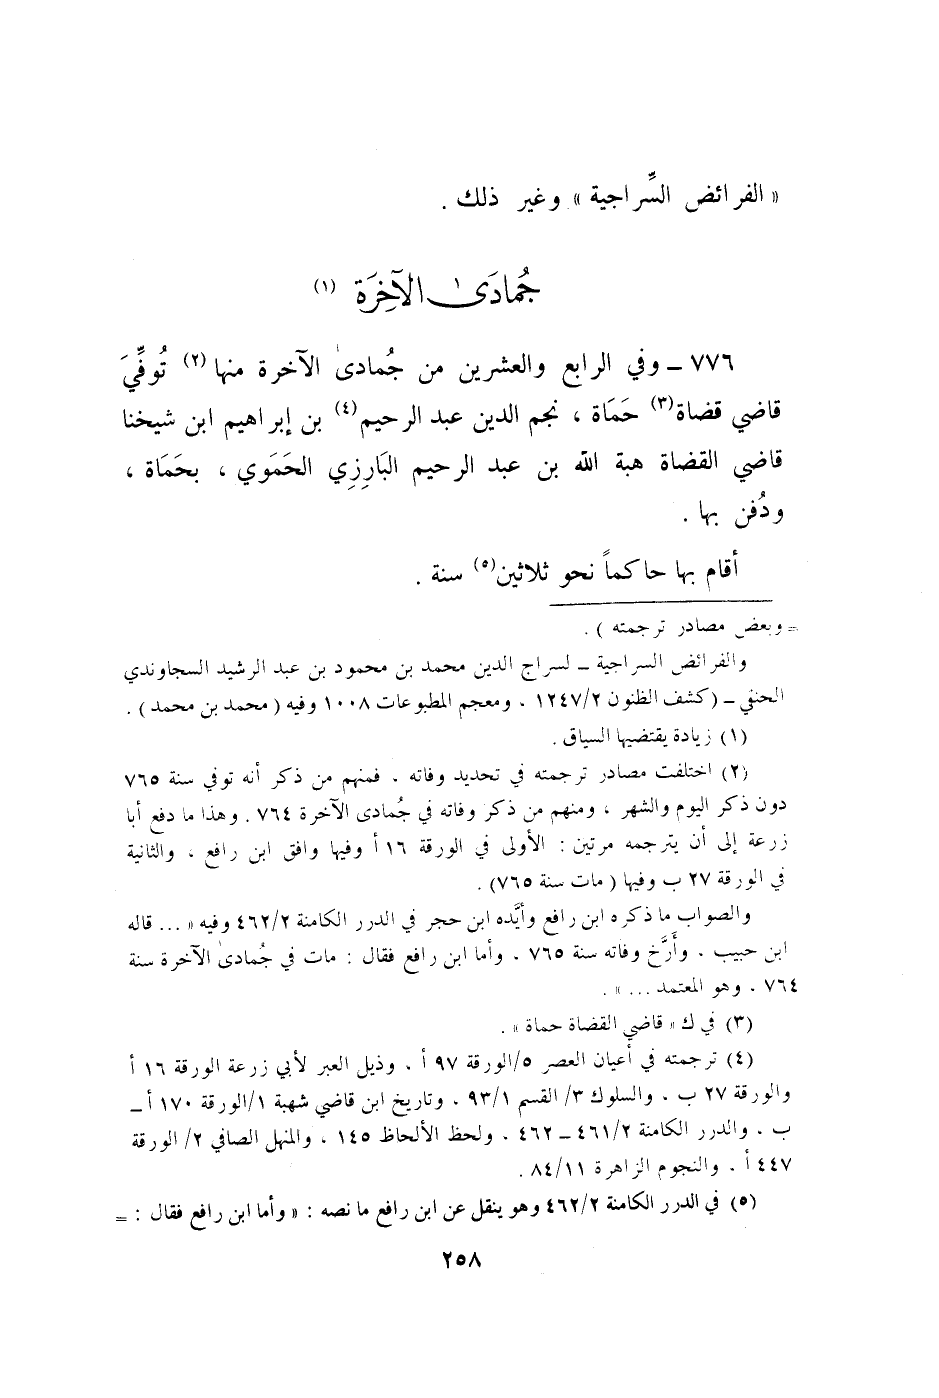 « الفرائض السِّراجية » وغير ذلك .
جُمادَىٰ الآخِرَة (١)
٧٧٦ ـ وفي الرابع والعشرين من جُمادىٰ الآخرة منها (٢) تُوفِّيَ
قاضي قضاة(٣) حَمَاة ، نجم الدين عبد الرحيم(٤) بن إبراهيم ابن شيخنا
قاضي القضاة هبة الله بن عبد الرحيم البَارِزِي الحَمَوي ، بحَمَاة ،
ودُفن بها .
أقام بها حاكماً نحو ثلاثين(٥) سنة .
= وبعض مصادر ترجمته ) .
والفرائض السراجية ـ لسراج الدين محمد بن محمود بن عبد الرشيد السجاوندي
الحنفي ـ (كشف الظنون ١٢٤٧/٢ ، ومعجم المطبوعات ١٠٠٨ وفيه ( محمد بن محمد ) .
(١) زيادة يقتضيها السياق .
(٢) اختلفت مصادر ترجمته في تحديد وفاته . فمنهم من ذكر أنه توفي سنة ٧٦٥
دون ذكر اليوم والشهر ، ومنهم من ذكر وفاته في جُمادى الآخرة ٧٦٤ . وهذا ما دفع أبا
زرعة إلى أن يترجمه مرتين : الأولى في الورقة ١٦ أ وفيها وافق ابن رافع ، والثانية
في الورقة ٢٧ ب وفيها ( مات سنة ٧٦٥) .
والصواب ما ذكره ابن رافع وأيَّده ابن حجر في الدرر الكامنة ٤٦٢/٢ وفيه « ... قاله
ابن حبيب . وأَرَّخ وفاته سنة ٧٦٥ . وأما ابن رافع فقال : مات في جُمادىٰ الآخرة سنة
٧٦٤ . وهو المعتمد ... » .
(٣) في ك « قاضي القضاة حماة » .
(٤) ترجمته في أعيان العصر ٥/الورقة ٩٧ أ ، وذيل العبر لأبي زرعة الورقة ١٦ أ
والورقة ٢٧ ب . والسلوك ٣/ القسم ٩٣/١ . وتاريخ ابن قاضي شهبة ١/الورقة ١٧٠ أ ـ
ب . والدرر الكامنة ٤٦١/٢ ـ ٤٦٢ . ولحظ الألحاظ ١٤٥ . والمنهل الصافي ٢/ الورقة
٤٤٧ أ . والنجوم الزاهرة ٨٤/١١ .
(٥) في الدرر الكامنة ٤٦٢/٢ وهو ينقل عن ابن رافع ما نصه : « وأما ابن رافع فقال : =
٢٥٨